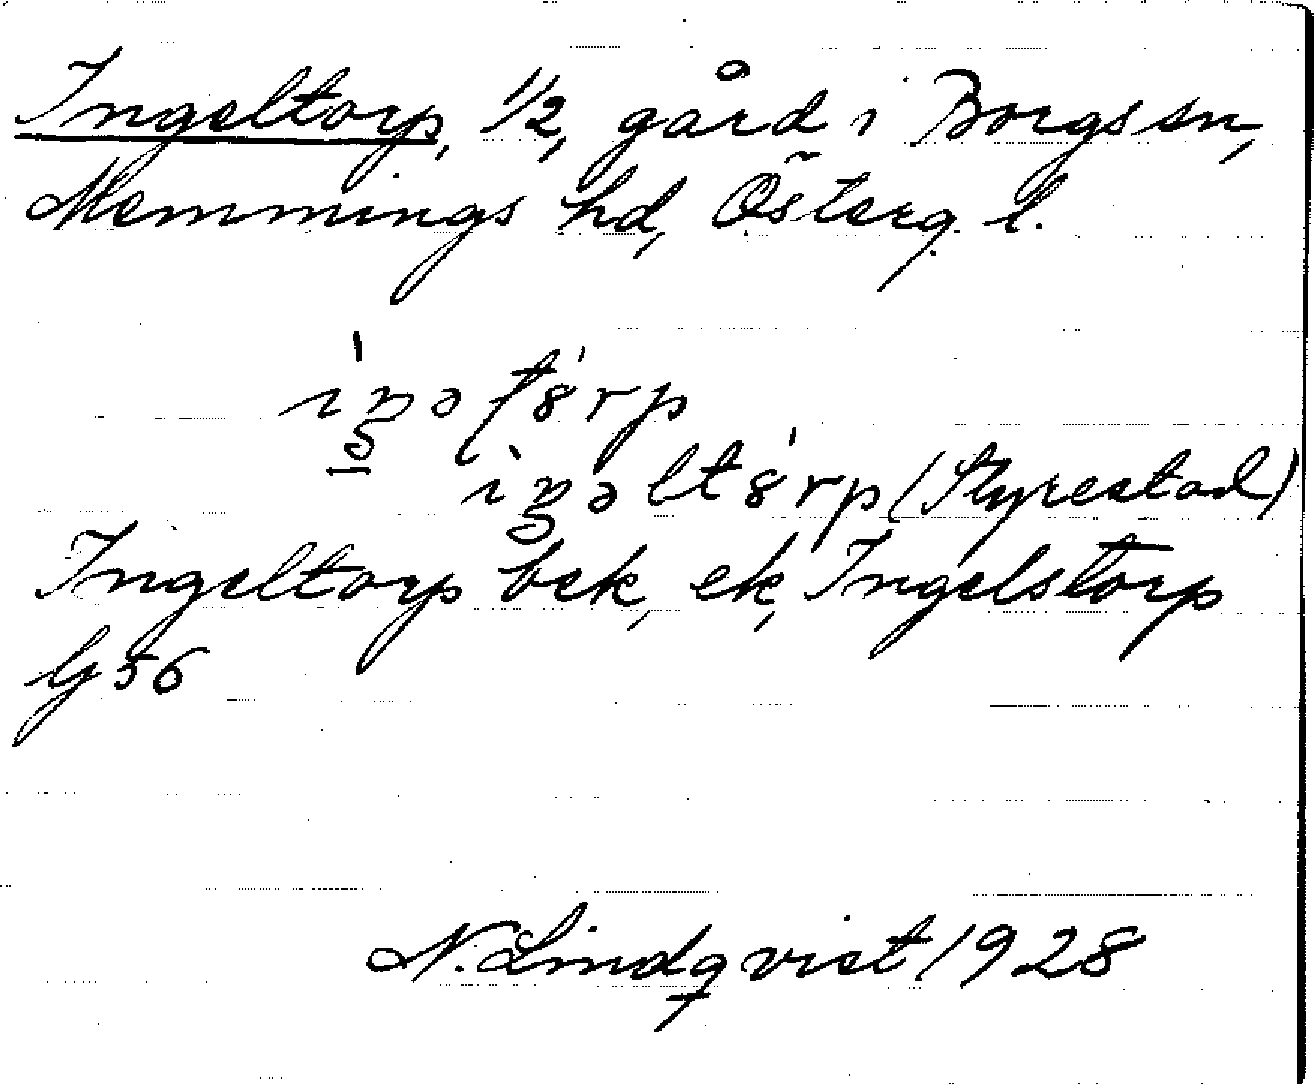 Ingeltorp, 1/2, gård i Borgs sn,
Memmings hd, Österg. l.
(Styrestad)
Ingeltorp bek, ek, Ingelstorp
G 56
N. Lindqvist 1928